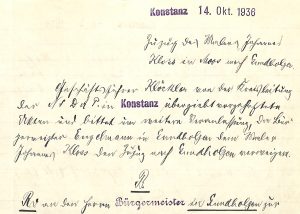 Konstanz 14. Okt. 1936
Zuzug des Malers Johannes
Kloss in Moos nach Gundholzen.
Geschäftsführer Klöckler von der Kreisleitung
der NSDAP. in Konstanz übergiebt vorgeheftete
Akten und bittet um weitere Veranlassung. Der Bür
germeister Engelmann in Gundholzen dem Maler
Johannes Kloss den Zuzug nach Gundholzen verweigern.
R
R. an den Herrn Bürgermeister in Gundholzen zur